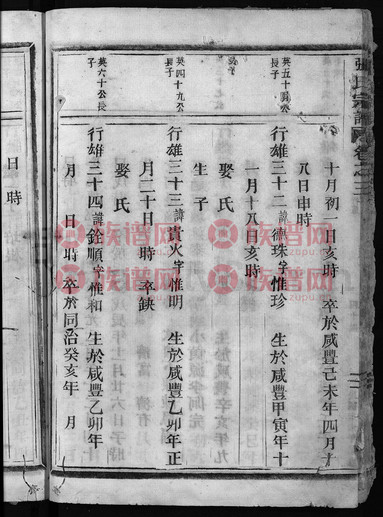 張氏宗譜 卷之三
十月初一日亥時 卒於咸豐己未年四月十
八日申時
英五十□公長子
行雄三十二諱德珠字惟珍 生於咸豐甲寅年十
一月十八日亥時
娶氏
生子
英四十九公長子
行雄三十三諱貴火字惟明 生於咸豐乙卯年正
月二十日 時 卒缺
娶氏
英六十公長子
行雄三十四諱銓順字惟和 生於咸豐乙卯年
月 日 時 卒於同治癸亥年 月
日 時
族谱网
zupu.cn